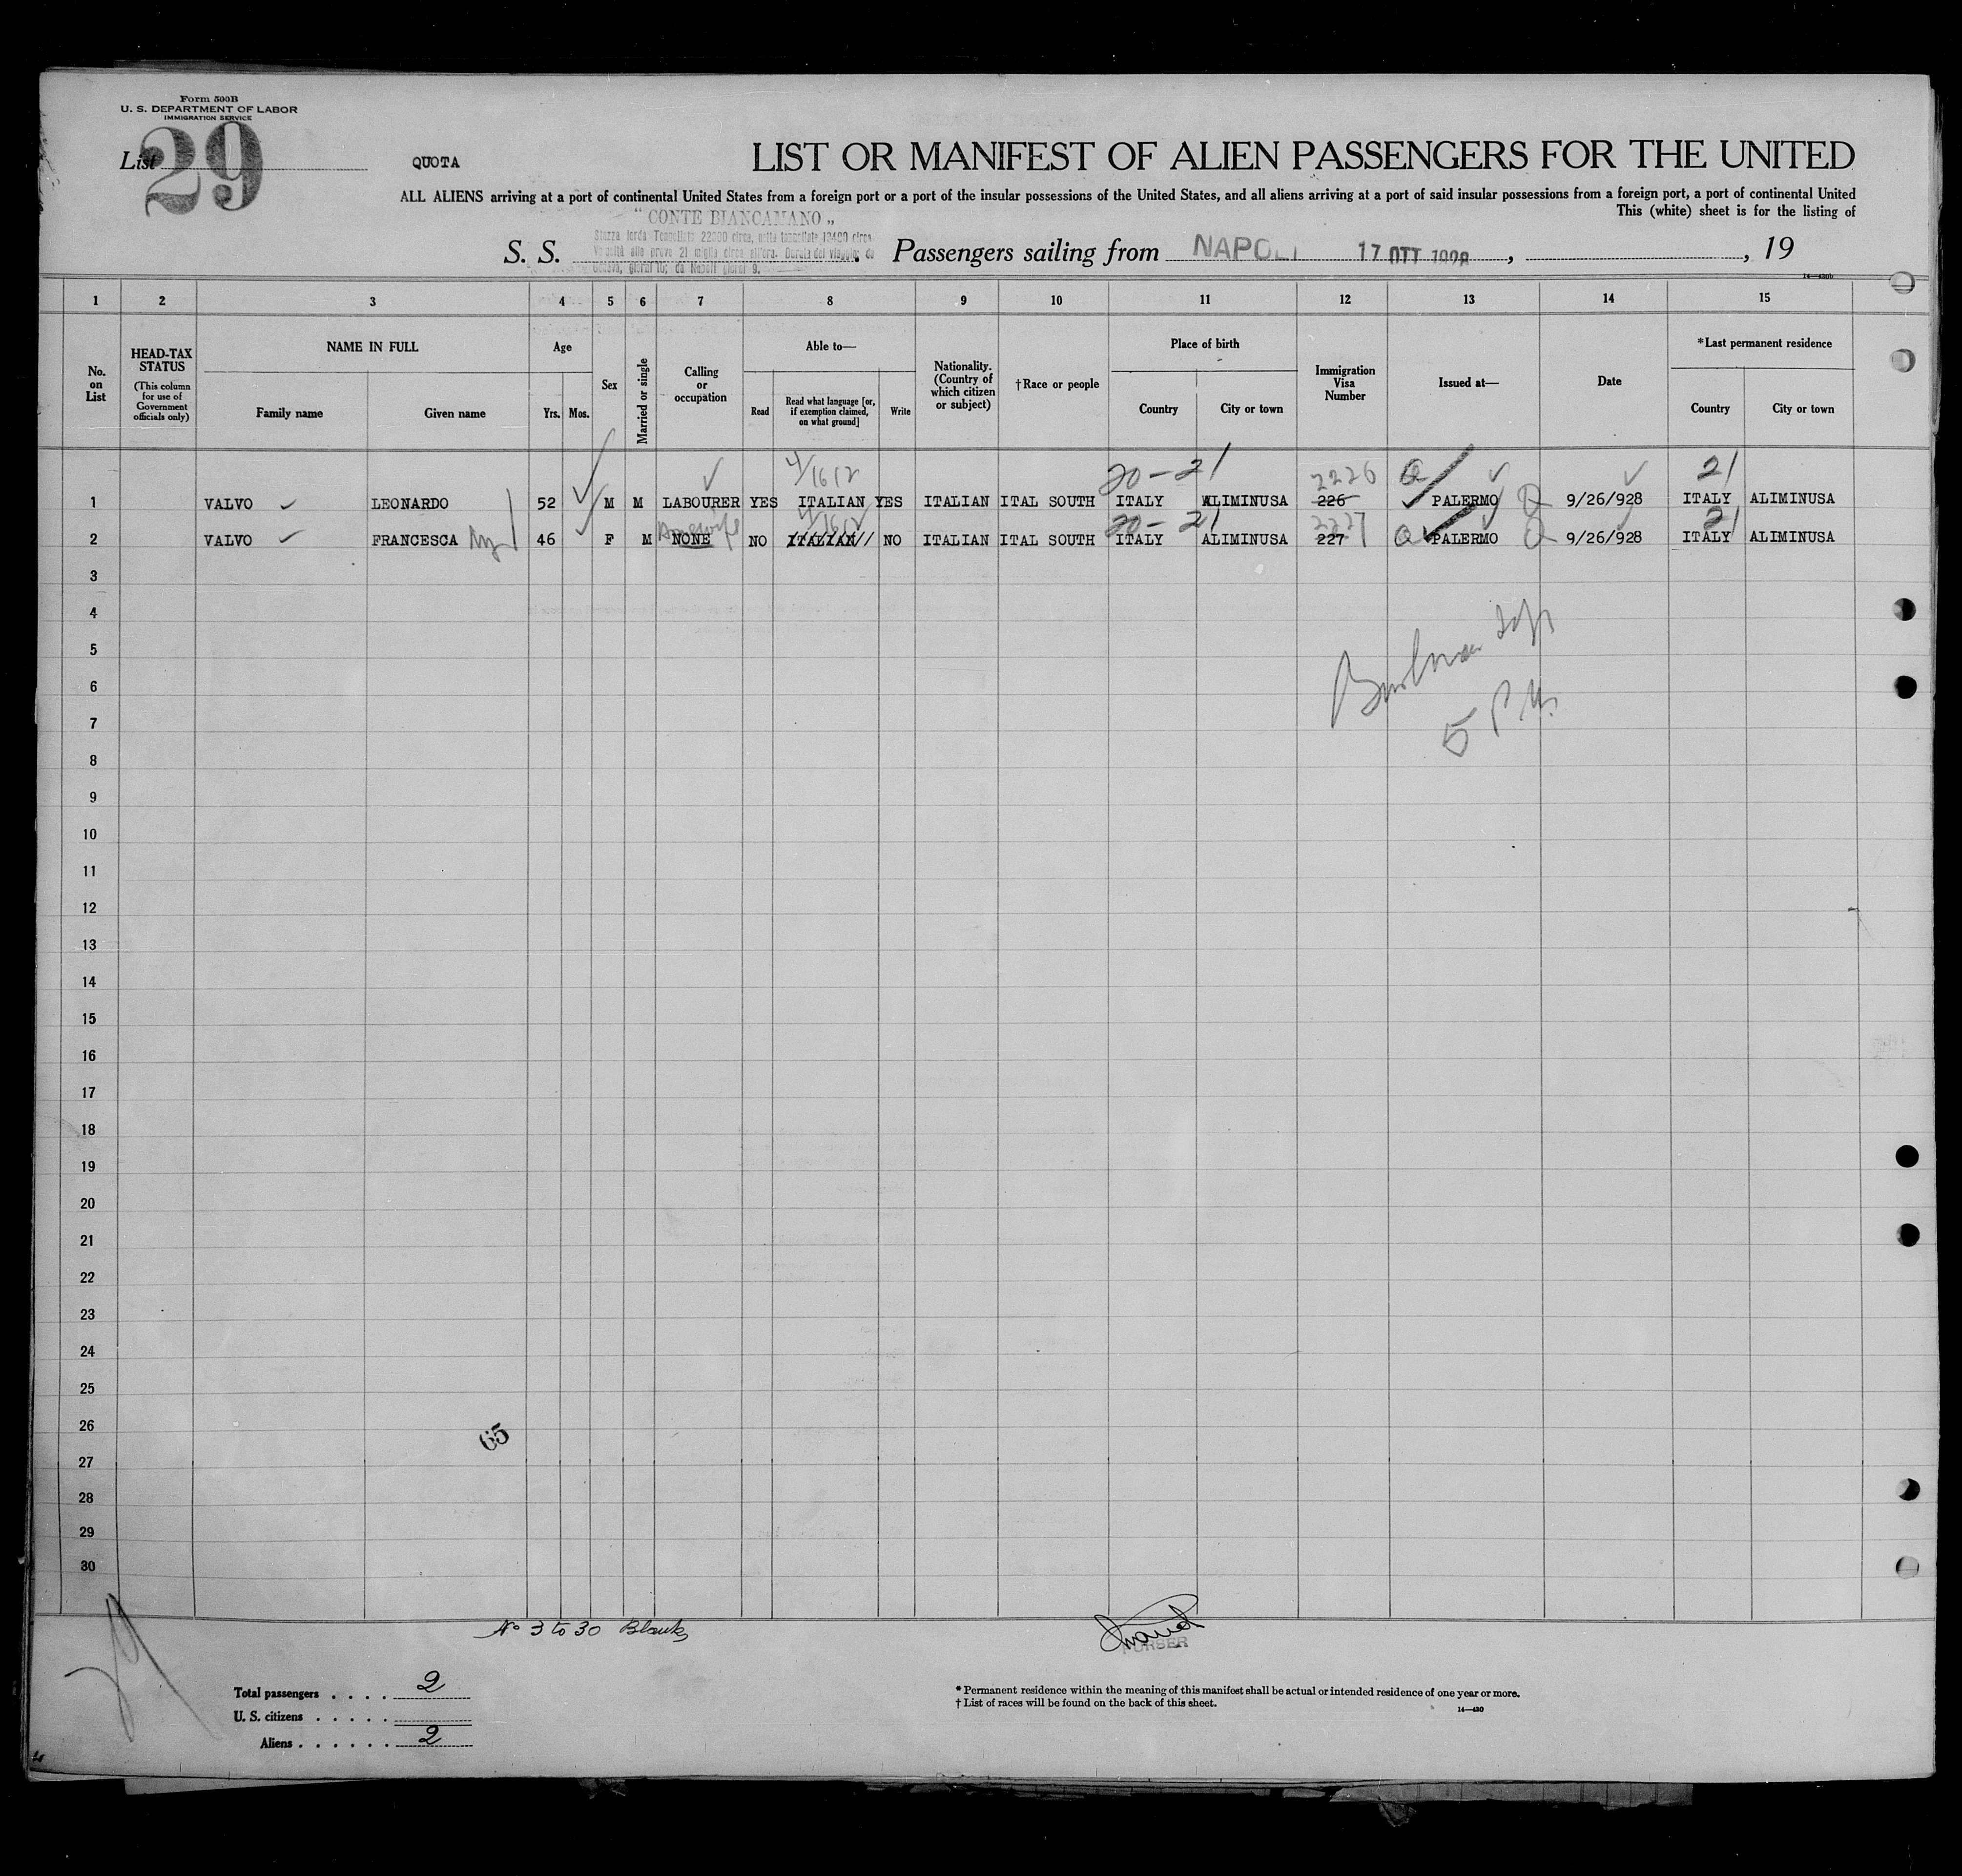 Form 500B
U. S. DEPARTMENT OF LABOR
IMMIGRATION SERVICE
List 29
QUOTA
LIST OR MANIFEST OF ALIEN PASSENGERS FOR THE UNITED
ALL ALIENS arriving at a port of continental United States from a foreign port or a port of the insular possessions of the United States, and all aliens arriving at a port of said insular possessions from a foreign port, a port of continental United
This (white) sheet is for the listing of
"CONTE BIANCAMANO"
S. S. Passengers sailing from NAPOLI 17 OTT 1928, , 19
14—420b
1 2 3 4 5 6 7 8 9 10 11 12 13 14 15
No. on List
HEAD-TAX STATUS
(This column for use of Government officials only)
NAME IN FULL
Family name Given name
Age
Yrs. Mos.
Sex
Married or single
Calling or occupation
Able to—
Read
Read what language [or, if exemption claimed, on what ground]
Write
Nationality. (Country of which citizen or subject)
†Race or people
Place of birth
Country City or town
Immigration Visa Number
Issued at—
Date
*Last permanent residence
Country City or town
20-21 2226 Q 21
1 VALVO LEONARDO 52 M M LABOURER YES ITALIAN YES ITALIAN ITAL SOUTH ITALY ALIMINUSA 226 PALERMO 9/26/928 ITALY ALIMINUSA
20-21 2227 21
2 VALVO FRANCESCA 46 F M NONE NO ITALIAN NO ITALIAN ITAL SOUTH ITALY ALIMINUSA 227 Q PALERMO 9/26/928 ITALY ALIMINUSA
3
4
5
6
7
8
9
10
11
12
13
14
15
16
17
18
19
20
21
22
23
24
25
26
65
27
28
29
30
No 3 to 30 Blanks
PURSER
29
Total passengers . . . . 2
U. S. citizens . . . . .
Aliens . . . . . . 2
* Permanent residence within the meaning of this manifest shall be actual or intended residence of one year or more.
† List of races will be found on the back of this sheet.
14—420